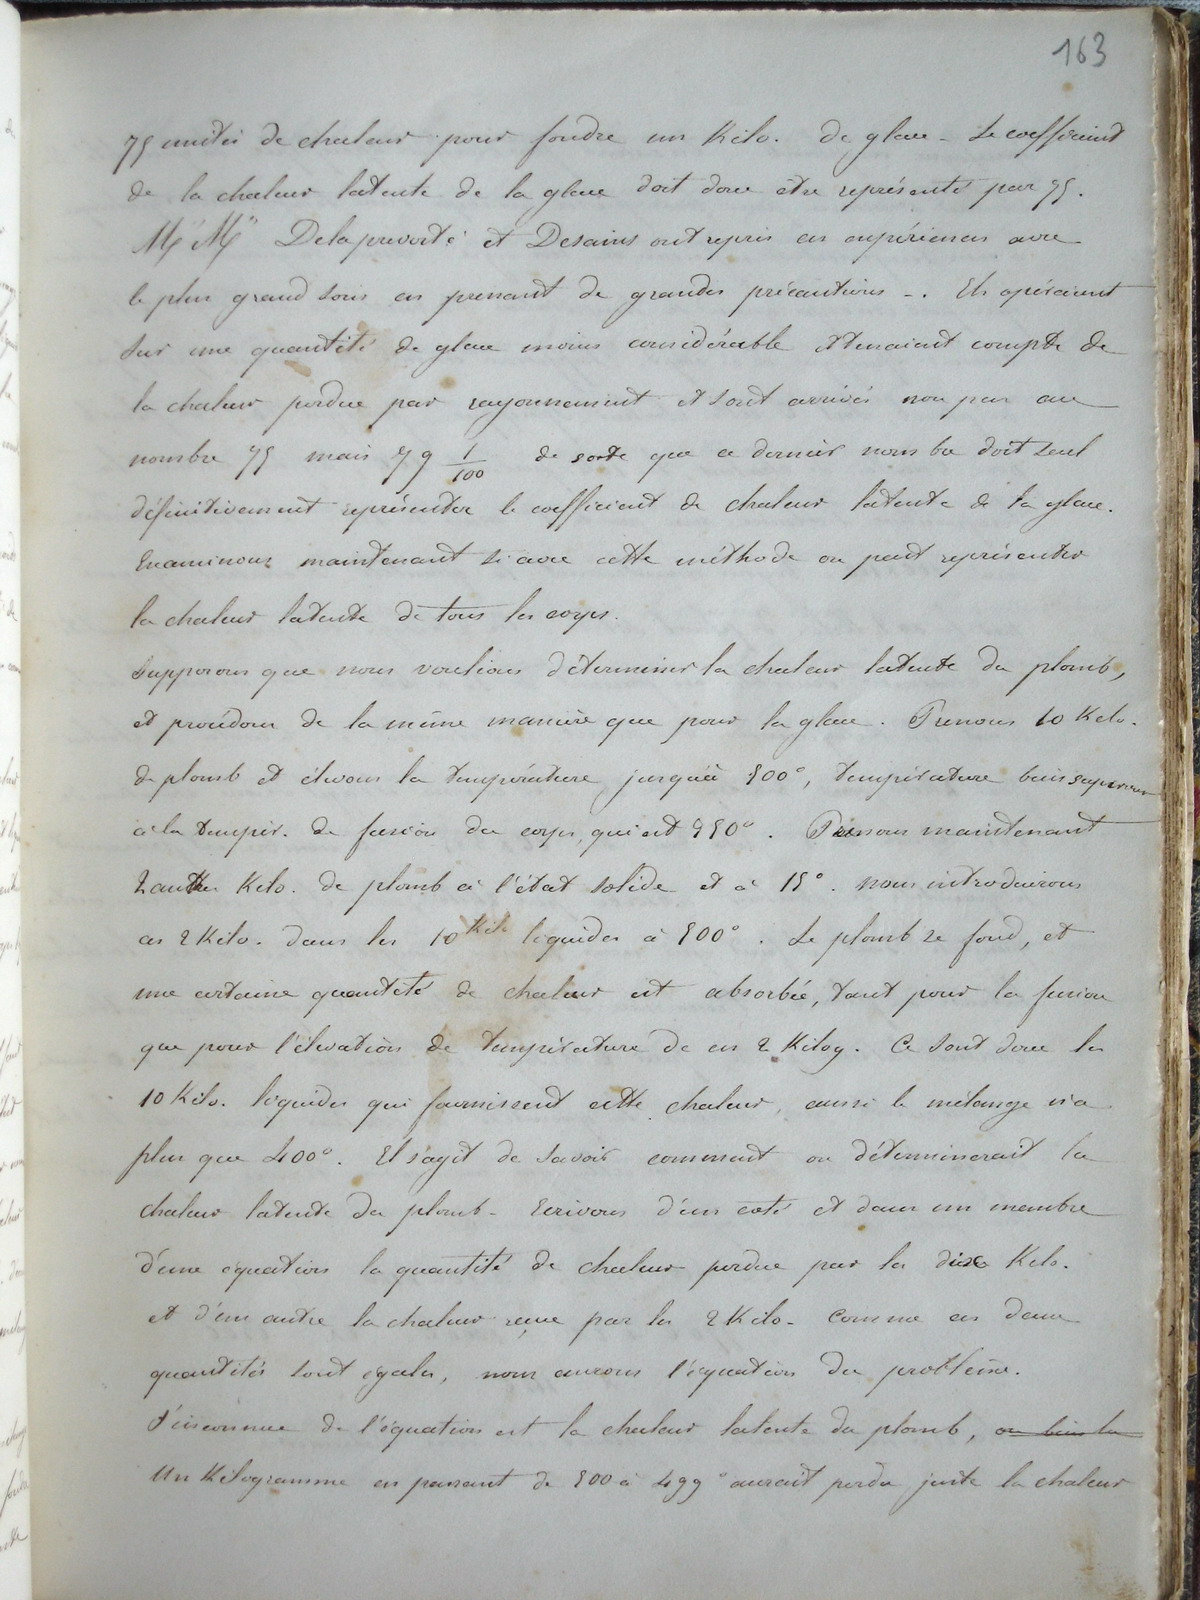 163
75 unités de chaleur pour fondre un Kilo. de glace - Le coefficient
de la chaleur latente de la glace doit donc être représenté par 75.
MM Delaprevosté et Desains ont repris ces expériences avec
le plus grand soin en prenant de grandes précautions -. Ils opéraient
sur une quantité de glace moins considérable et tenaient compte de
la chaleur perdue par rayonnement et sont arrivés non pas au
nombre 75 mais 79 1/100 de sorte que ce dernier nombre doit seul
définitivement représenter le coefficient de chaleur latente de la glace.
Examinons maintenant si avec cette méthode on peut représenter
la chaleur latente de tous les corps.
Supposons que nous voulions déterminer la chaleur latente du plomb,
et procédons de la même manière que pour la glace. Prenons 10 Kilo.
de plomb et élevons la température jusqu'à 500°, température bien supérieure
à la tempér. de fusion du corps, qui est 350°. Prenons maintenant
2 autres Kilo. de plomb à l'état solide et à 15°. nous introduisons
ces 2 Kilo. dans les 10 Kilo liquides à 500°. Le plomb se fond, et
une certaine quantité de chaleur est absorbée, tant pour la fusion
que pour l'élévation de température de ces 2 Kilog. Ce sont donc les
10 Kilo. liquides qui fournissent cette chaleur, aussi le mélange n'a
plus que 400°. Il s'agit de savoir comment on déterminerait la
chaleur latente du plomb - Ecrivons d'un coté et dans un membre
d'une équation la quantité de chaleur perdue par les dix Kilo.
et d'un autre la chaleur reçue par les 2 Kilo - Comme ces deux
quantités sont égales, nous aurons l'équation du problème.
L'inconnue de l'équation est la chaleur latente du plomb, ou bien la
Un Kilogramme en passant de 500 à 499° aurait perdu juste la chaleur